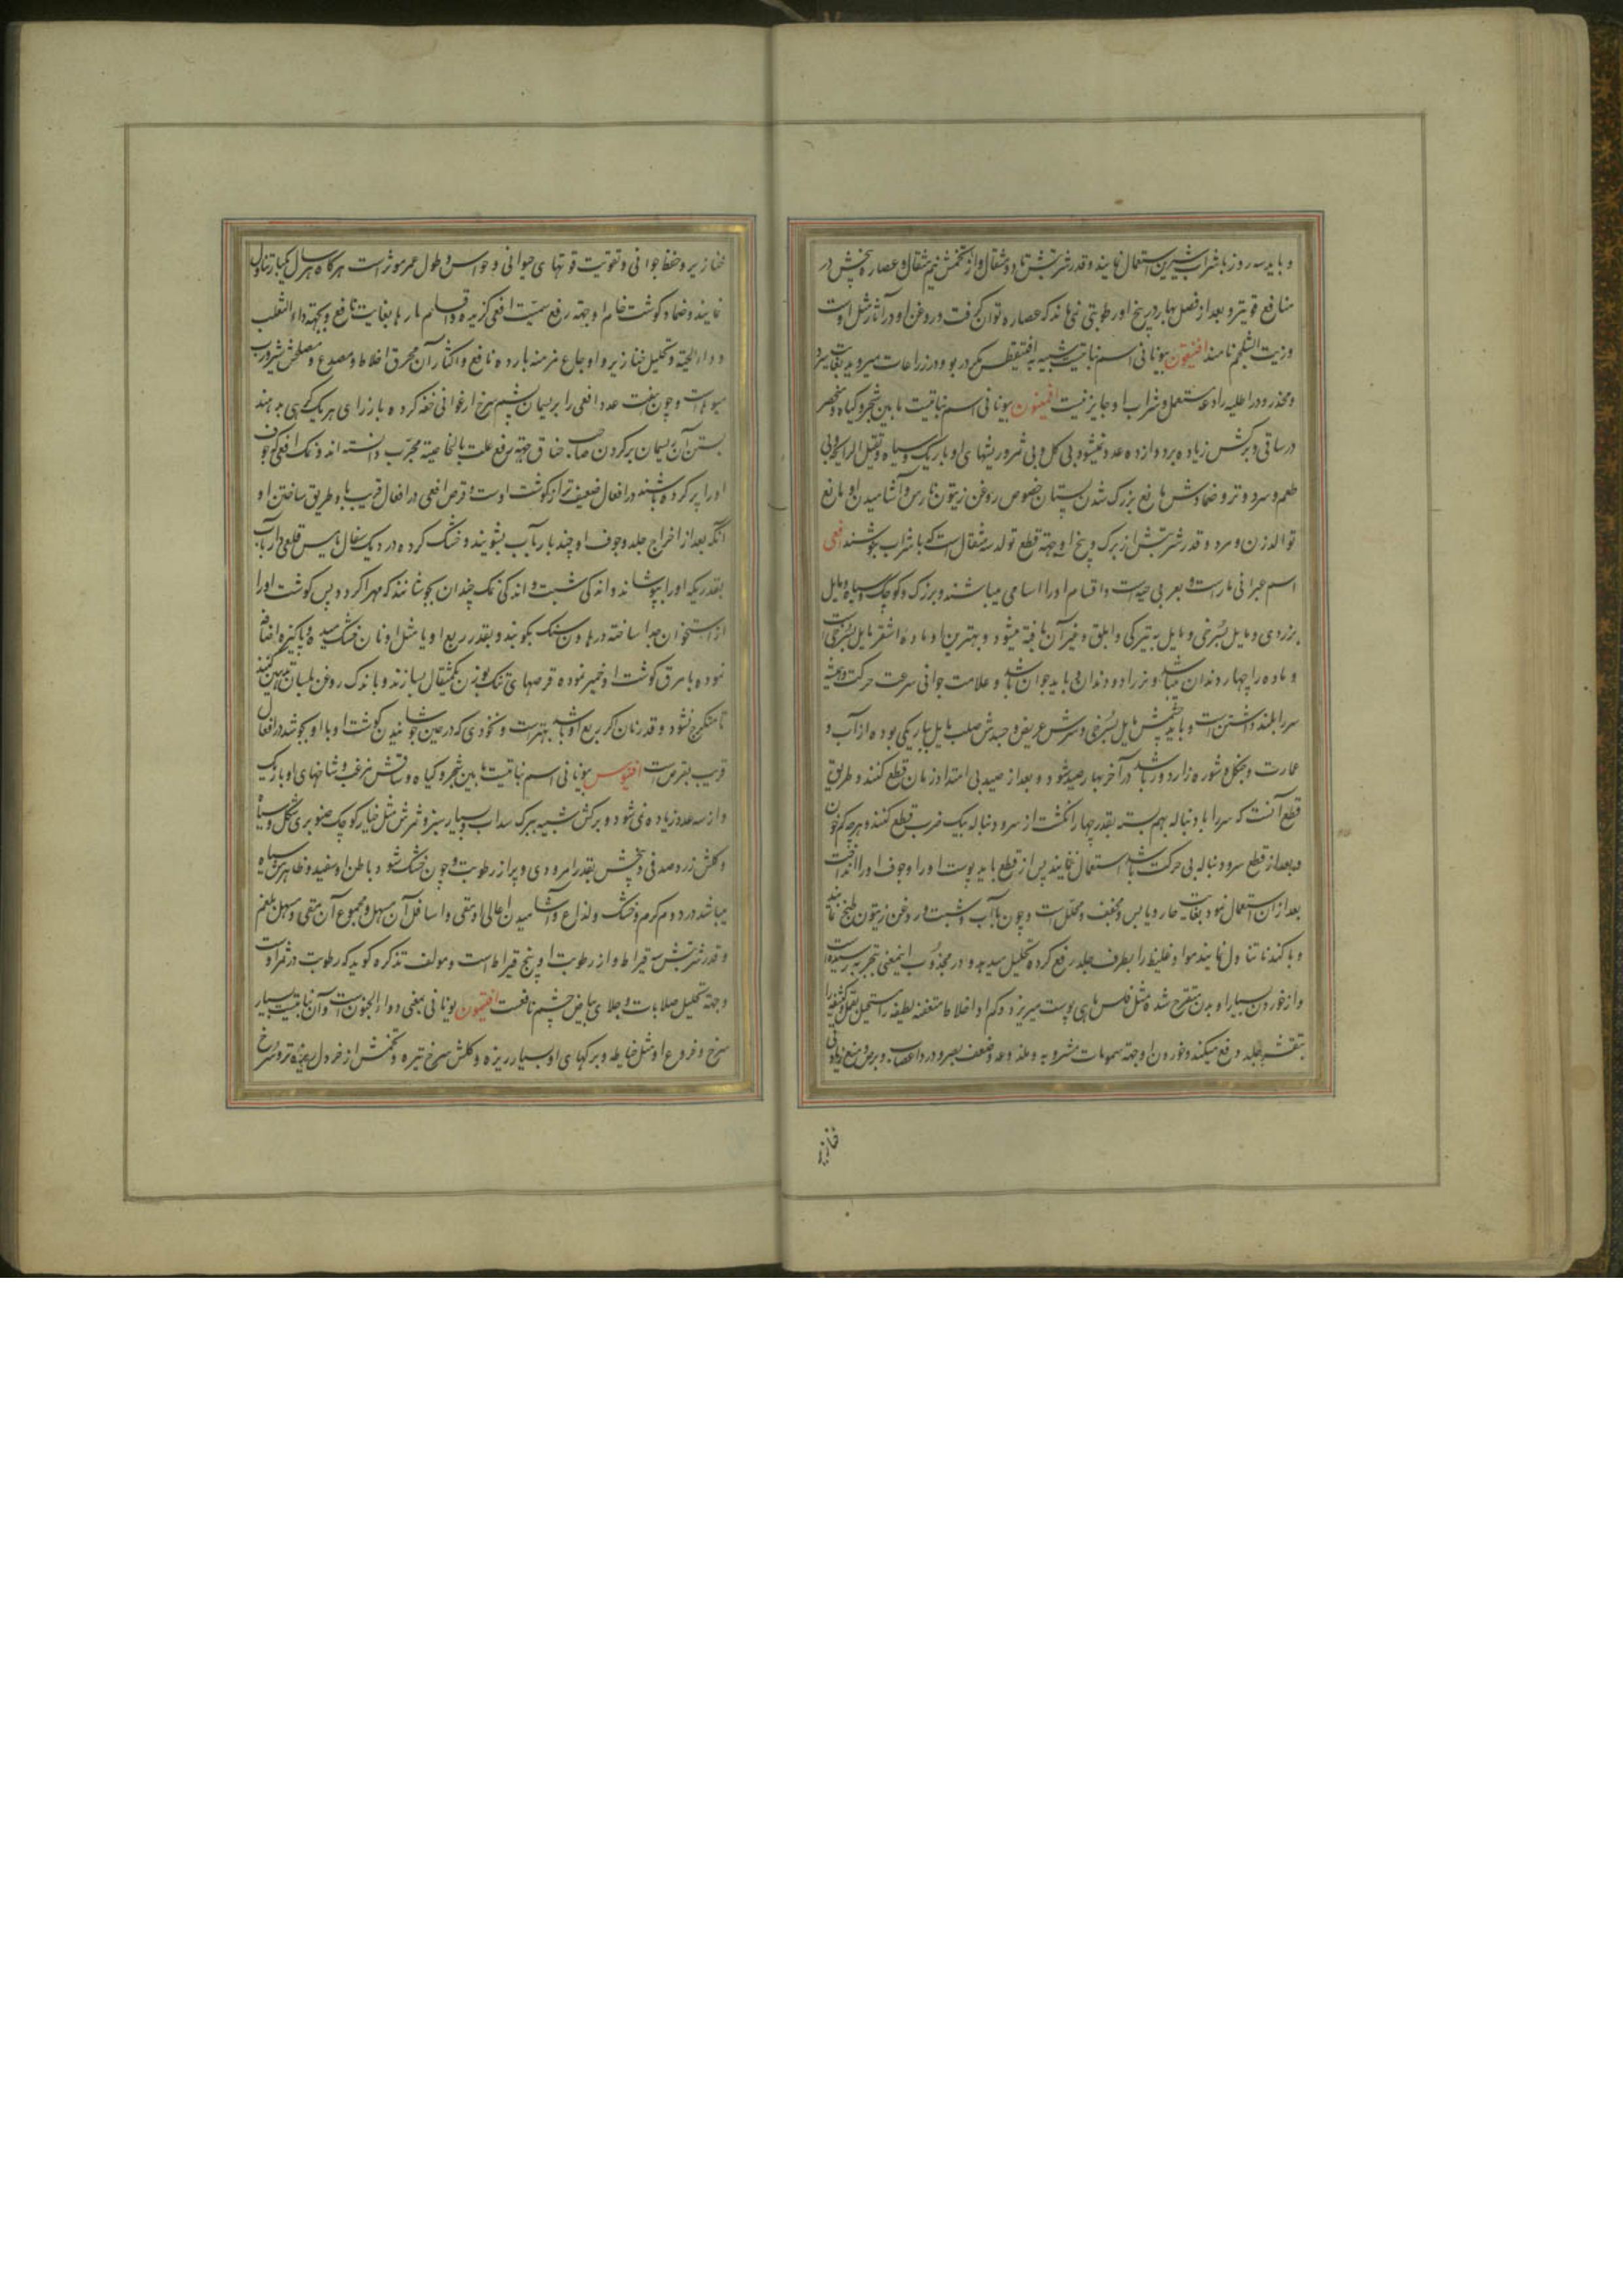 و باید سه روز با شراب شیرین استعمال نمایند و قدر شربتش تا دو مثقال و از تخمش نیم مثقال و عصاره بیخش در
منافع قویتر و بعد از فصل بهار در بیخ او رطوبتی نمی ماند که عصاره توان گرفت و روغن او در آثار مثل اوست
و زیت الشلجم نامند افنیقون بیونانی اسم نباتیست شبیه به در بو و در زراعات میروید بغایت سرد
و مخدر و در اطلیه رادعه مستعمل و شراب او جایز نیست بیونانی اسم نباتیست مابین شجر و کیاه و منحصر
در ساقی و برکش زیاده بر ده وازده عدد نمیشود بی کل و بی ثمر و ریشهای او باریک و سیاه و ثقیل الرایحه و بی
طعم و سرد و تر و ضمادش مانع بزرک شدن پستان خصوص روغن زیتون نارس و آشامیدن او مانع
توالد زن و مرد و قدر شربتش از برک و بیخ او جهة قطع تولد سه مثقالست که با شراب بنوشند افعی
اسم عبرانی مارست و بعربی حیه است و اقسام او را اسامی میباشند و بزرک و کوچک و سیاه و مایل
بزردی و مایل بسرخی و مایل به تیرکی و ابلق و غیر آن یافته میشود و بهترین او ماده اشقر مایل بسرخی است
و ماده را چهار دندان میباشد و نر را دو دندان و باید جوان باشد و علامت جوانی سرعت حرکت و همیشه
سر را بلند داشتن است و باید چشمش مایل بسرخی و سرش عریض و جسدش صلب مایل بباریکی بوده از آب و
عمارت و جنکل و شوره زار دور باشد و در آخر بهار صید شود و بعد از صید بی امتداد زمان قطع کنند و طریق
قطع آنست که سر را با دنباله بهم بسته بقدر چهار انکشت از سر و دنباله بیک ضرب قطع کنند و هرچه کم خون
و بعد از قطع سر و دنباله بی حرکت باشد استعمال ننمایند پس از قطع باید پوست او را و جوف او را انداخت
بعد از آن استعمال نمود بغایت حار و یابس و مجفف و محلل است و چون با آب و شبت و روغن زیتون طبخ نمایند
و با کند نا تناول نمایند مواد غلیظ را بطرف جلد رفع کرده تحلیل میدهد و در مجذوب اینمعنی بتجربه رسیده است
و از خوردن بسیار او بدن متقرح شده مثل فلس ماهی پوست میریزد و کم او اخلاط متعفنه لطیفه را مستحیل بقمل و کثیفه را
بتقشر جلد دفع میکند و خوردن او جهة سمومات مشروبه و ملدوعه و ضعف بصر و درد اعصاب و برص و منع زیادتی
خنازیر
خنازیر و حفظ جوانی و تقویت قوتهای حیوانی و حواس و طول عمر موثر است هرکاه هر سال یکبار تناول
نمایند و ضماد کوشت خام او جهة رفع سمیت افعی کزیده و اقسام مارها بغایت نافع و بجهة داء الثعلب
و داء الحیه و تحلیل خنازیر و اوجاع مزمنه بارده نافع و اکثار آن محرق اخلاط و مصدع و مصلحش شیر و رب
میوهاست و چون هفت عدد افعی را بریسمان پشم سرخ ارغوانی خفه کرده بازرای هر یک کرهی بدهند
بستن آن ریسمان بر کردن صاحب خناق جهة رفع علت بالخاصیة مجرب دانسته اند و نمک افعی که جوف
او را پر کرده باشند در افعال ضعیف تر از کوشت اوست و قرص افعی در افعال قریب باو طریق ساختن او
آنکه بعد از اخراج جلد و جوف او چند بار بآب بشویند و خشک کرده در دیک سفال یا مس قلعی دار با آب
بقدریکه او را بپوشاند و اندکی شبت و اندکی نمک چندان بجوشانند که مهرا کردد پس کوشت او را
از استخوان جدا ساخته در هاون سنک بکوبند و بقدر ربع او یا مثل او نان خشک سمید پاکیزه اضافه
نموده با مرق کوشت او خمیر نموده قرصهای تنک بوزن یکمثقال بسازند و باندک روغن بلسان تدهین کنند
تا متکرج نشود و قدر نان اکر بربع او باشد بهتر است و نخودی که در عین جوشانیدن کوشت او با او بجوشد در افعال
قریب بقرص است بیونانی اسم نباتیست مابین شجر و کیاه و ساقش مزغب و شاخهای او باریک
و از سه عدد زیاده نمی شود و برکش شبیه ببرک سداب و بسیار سبز و ثمرش مثل خیار کوچک صنوبری شکل و سیاه
و کلش زرد صدفی و بیخش بقدر امرودی و پر از رطوبت و چون خشک شود باطن او سفید و ظاهرش سیاه
میباشد در دوم کرم و خشک و لذاع و آشامیدن اعالی او مقی و اسافل آن مسهل و مجموع آن مقی و مسهل بلغم
و قدر شربتش سه قیراط و از رطوبت او پنج قیراط است و مولف تذکره کوید که رطوبت در ثمر اوست
و جهة تحلیل صلابات و جلای بیاض چشم نافعست افتیمون یونانی بمعنی دواء الجنونست و آن نباتیست بسیار
سرخ و فروع او مثل خیاطه و برکهای او بسیار ریزه و کلش سرخ تیره و تخمش از خردل ریزه تر و سرخ